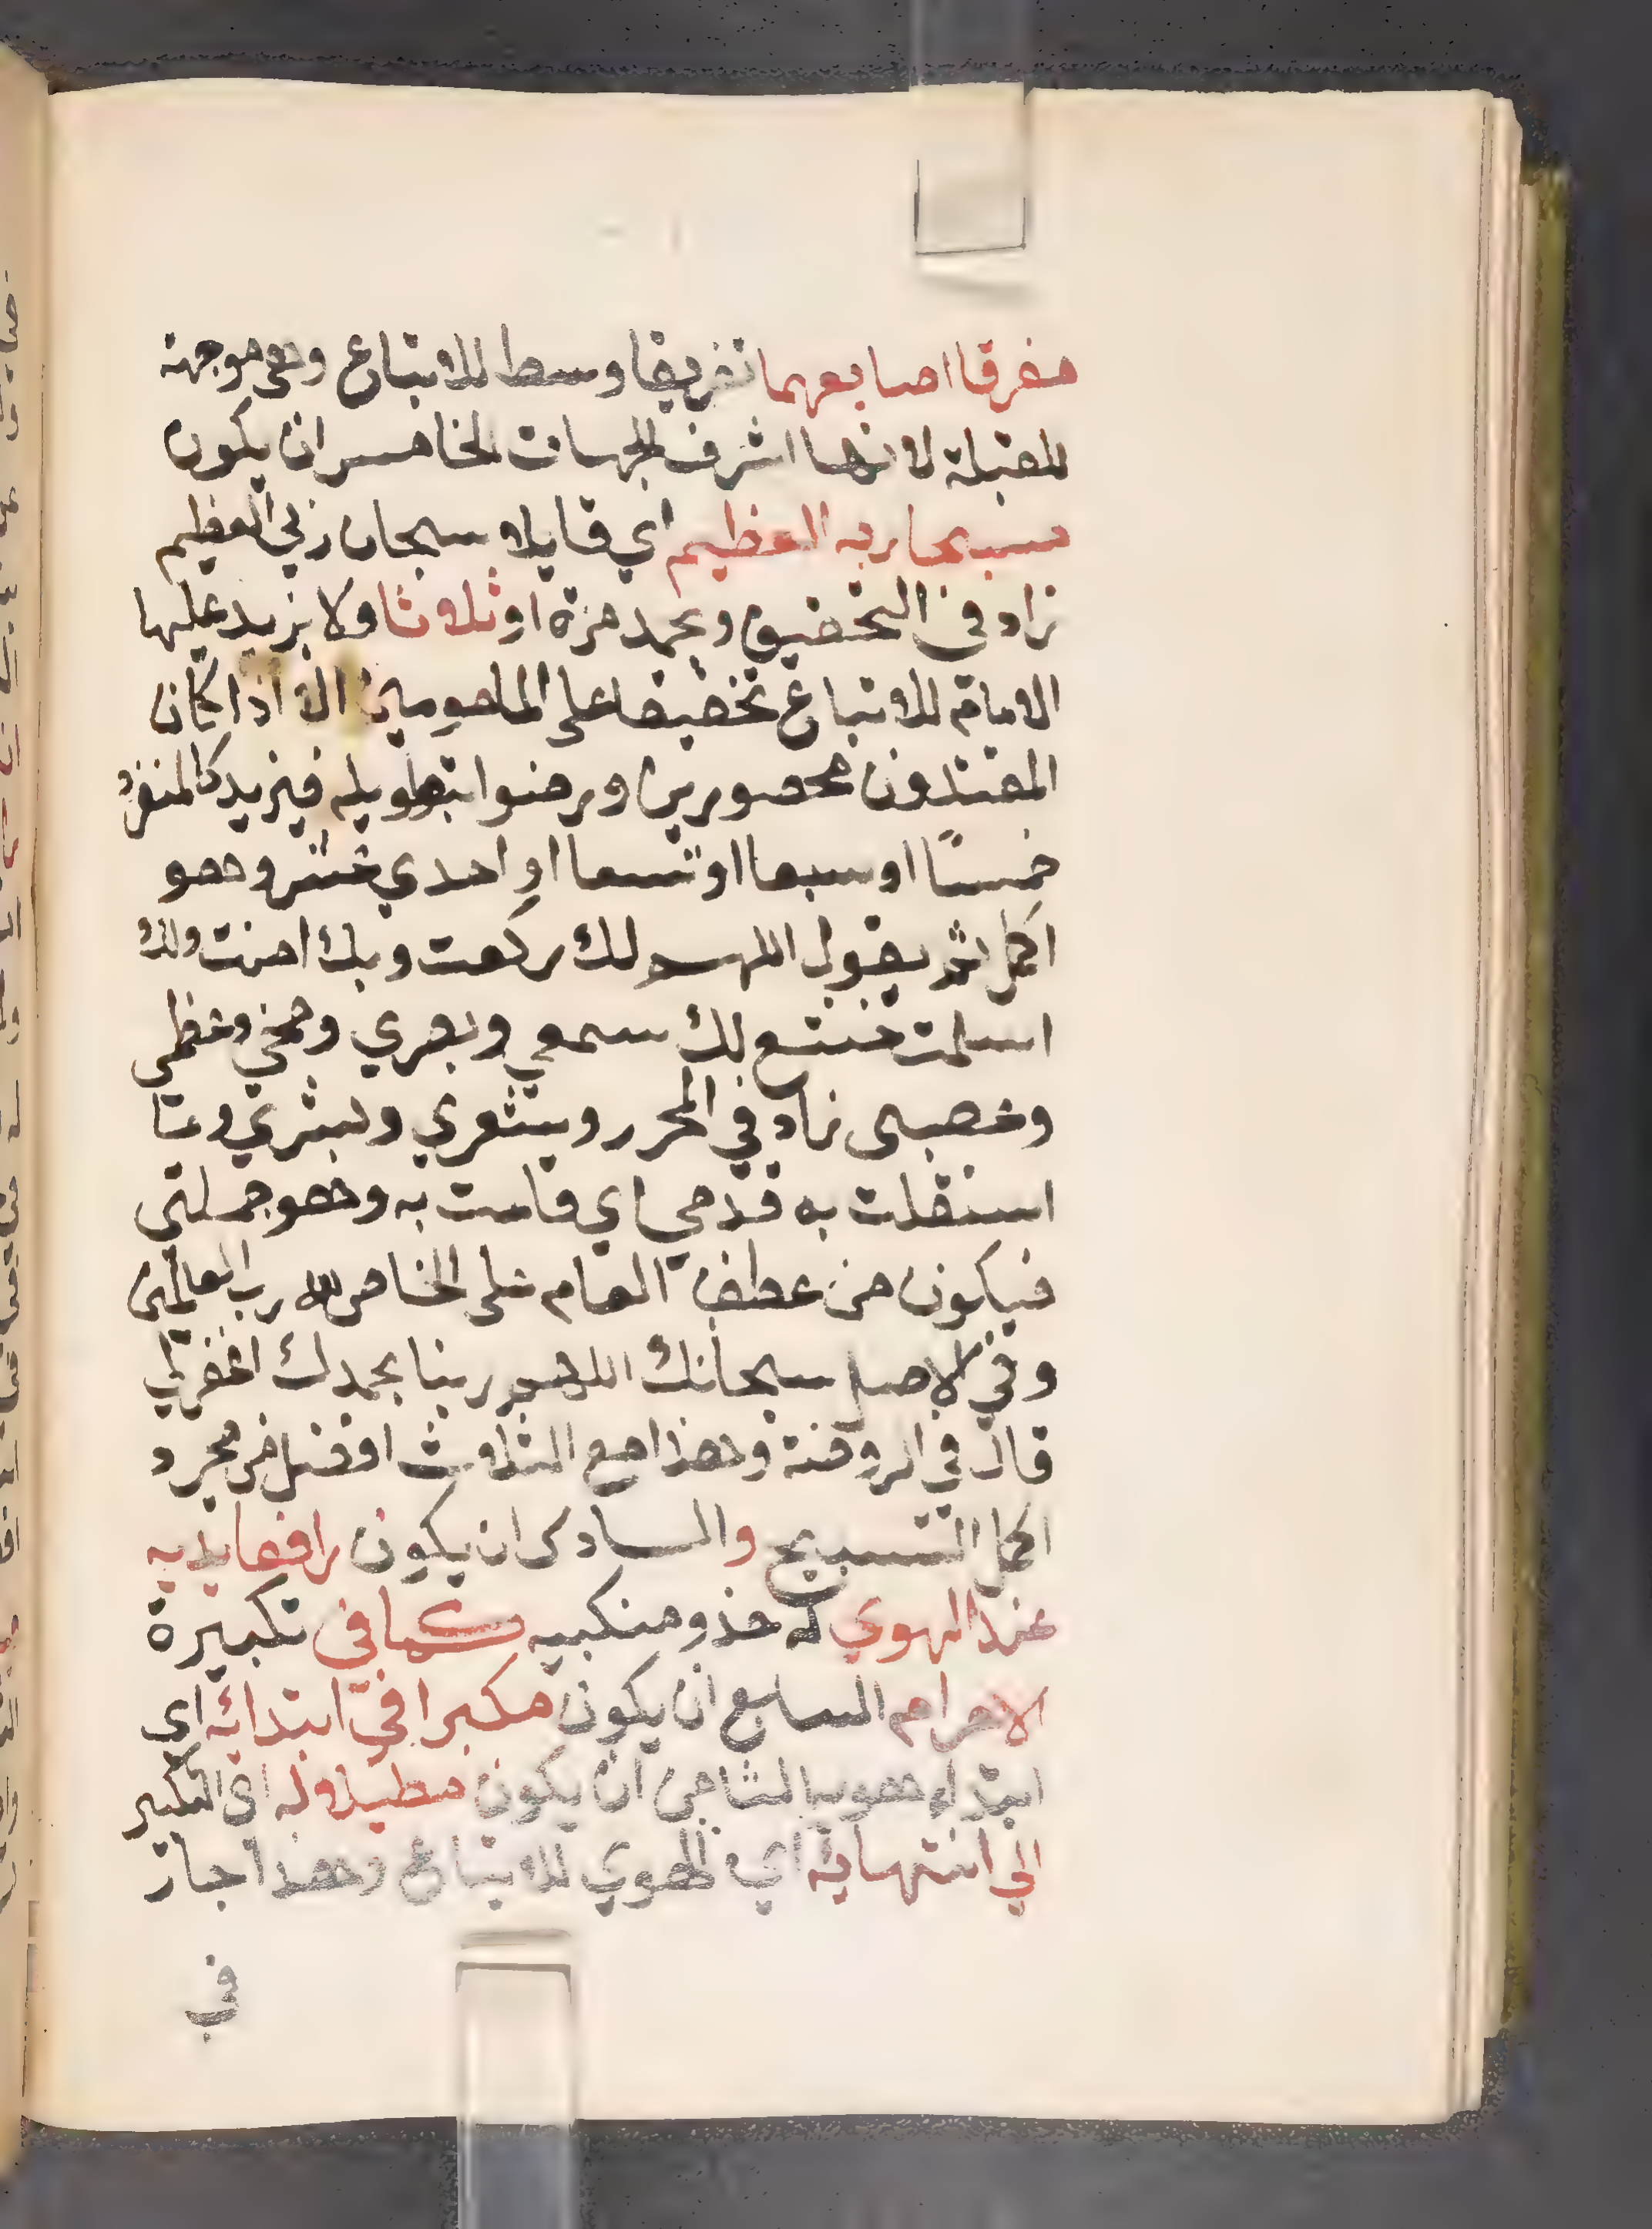 مفرقا اصابعهما تفريقا وسطا للاتباع وهي موجهة
للقبلة لانها اشرف الجهات الخامس ان يكون
مسبحا ربه العظيم اي قايلا سبحان ربي العظيم
زاد في التحقيق وبحمده مرة او ثلاثا ولا يزيد عليها
الامام للاتباع تخفيفا على المامومين الا اذا كان
المقتدون محصورين ورضوا بتطويله فيزيد كالمنفرد
خمسًا او سبعا او تسعا او احدي عشر وهو
اكمل ثم يقول اللهم لك ركعت وبك امنت ولك
اسلمت خشع لك سمعي وبصري ومخي وعظمي
وعصبى زاد في المحرر وشعري وبشري وما
استقلت به قدمي اي قامت به وهو جملتي
فيكون من عطف العام على الخاص لله رب العالمين
وفي الاصل سبحانك اللهم ربنا بحمدك اغفرلي
قال في الروضة وهذا مع الثلاث افضل من مجرد
اكمل التسبيح والسادس ان يكون رافعا يديه
عند الهوي له حذو منكبيه كما في تكبيرة
الاحرام السابع ان يكون مكبرا في ابتدائه اي
ابتداء هويه الثامن ان يكون مطيلا له اي التكبير
الي انتهايه اي الهوي للاتباع وهذا جار
في